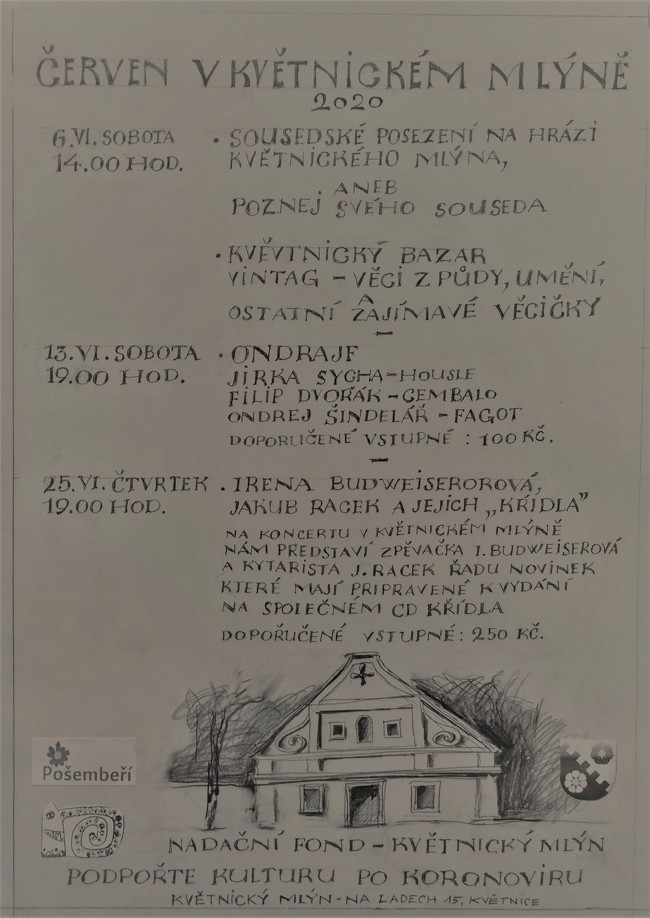 ČERVEN V KVĚTNICKÉM MLÝNĚ
2020
6.VI. SOBOTA
14.00 HOD.
• SOUSEDSKÉ POSEZENÍ NA HRÁZI
KVĚTNICKÉHO MLÝNA,
ANEB
POZNEJ SVÉHO SOUSEDA
• KVĚVTNICKÝ BAZAR
VINTAG – VĚCI Z PŮDY, UMĚNÍ,
A
OSTATNÍ ZAJÍMAVÉ VĚCIČKY
–
13.VI. SOBOTA
19.00 HOD.
• ONDRAJF
JIRKA SYCHA – HOUSLE
FILIP DVOŘÁK – CEMBALO
ONDREJ ŠINDELÁŘ – FAGOT
DOPORUČENÉ VSTUPNÉ : 100 KČ.
–
25.VI. ČTVRTEK
19.00 HOD.
• IRENA BUDWEISEROROVÁ,
JAKUB RACEK A JEJICH „KŘÍDLA"
NA KONCERTU V KVĚTNICKÉM MLÝNĚ
NÁM PŘEDSTAVÍ ZPĚVAČKA I. BUDWEISEROVÁ
A KYTARISTA J. RACEK ŘADU NOVINEK
KTERÉ MAJÍ PRIPRAVENÉ K VYDÁNÍ
NA SPOLEČNÉM CD KŘÍDLA
DOPOŘUČENÉ VSTUPNÉ : 250 KČ.
Pošembeří
NADAČNÍ FOND – KVĚTNICKÝ MLÝN
PODPOŘTE KULTURU PO KORONOVIRU
KVĚTNICKÝ MLÝN - NA LADECH 15, KVĚTNICE